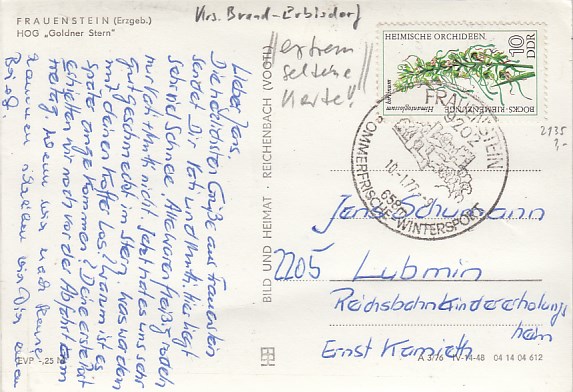 FRAUENSTEIN (Erzgeb.)
HOG „Goldner Stern"
Krs. Brand-Erbisdorf
extrem
seltene
Karte!
HEIMISCHE ORCHIDEEN
10
DDR
BOCKS-RIEMENZUNGE
Himantoglossum
hircinum
FRAUENSTEIN
9202
10.-1.77
SOMMERFRISCHE·WINTERSPORT
2135
Lieber Jens,
Die herzlichsten Grüße aus Frauenstein
sendet Dir Vati und Mutti. Hier liegt
sehr viel Schnee. Alle waren fleißig rodeln
nur Vati + Mutti nicht. Jetzt hat es uns sehr
gut geschmeckt im Stern. Was war denn
mit deinen Koffer los? Warum ist es
später angekommen? Deine erste Post
erhielten wir noch vor der Abfahrt am
Freitag. Wenn wir nach Hause
kommen
BILD UND HEIMAT · REICHENBACH (VOGTL)
Jens Schumann
2205 Lubmin
Reichsbahnkindererholungs
heim
Ernst Kamieth
EVP -,25 M
A 3/76 IV-14-48 04 14 04 612